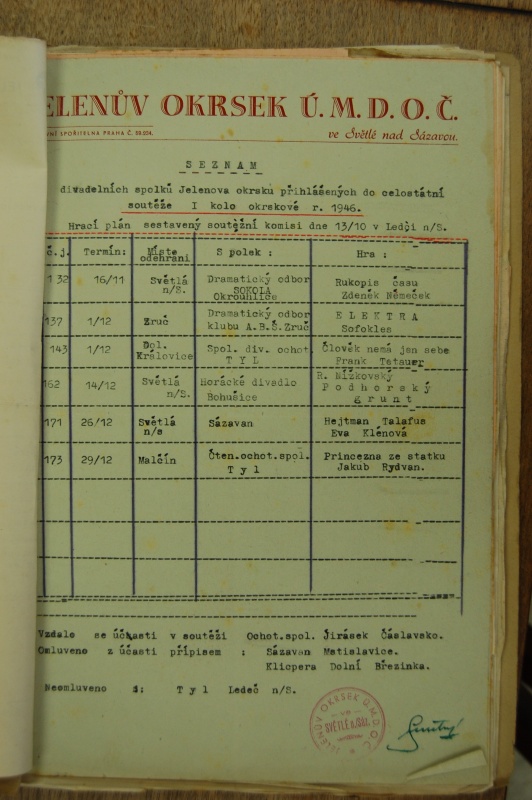 ELENŮV OKRSEK Ú.M.D.O.Č.
SPOŘITELNA PRAHA Č. ve Světlé nad Sázavou.
SEZNAM
divadelních spolků Jelenova okrsku přihlášených do celostátní
soutěže I kolo okrskové r. 1946.
Hrací plán sestavený soutěžní komisi dne 13/10 v Ledči n/S.
č.j. Termín: Místo odehrání Spolek : Hra :
132 16/11 Světlá n/S. Dramatický odbor SOKOLA Okrouhlice Rukopis času Zdeněk Němeček
137 1/12 Zruč Dramatický odbor klubu A.B.Š.Zruč ELEKTRA Sofokles
143 1/12 Dol. Královice Spol. div. ochot. TYL Člověk nemá jen sebe Frank Tetauer
162 14/12 Světlá n/S. Horácké divadlo Bohušice R. Nížkovský Podhorský grunt
171 26/12 Světlá n/s Sázavan Hejtman Talafus Eva Klénová
173 29/12 Malčín Čten.ochot.spol. Tyl Princezna ze statku Jakub Rydvan.
Vzdalo se účasti v soutěži Ochot.spol. Jirásek Čáslavsko.
Omluveno z účasti přípisem : Sázavan Matislavice.
Klicpera Dolní Březinka.
Neomluveno : Tyl Ledeč n/S.
JELENŮV OKRSEK Ú.M.D.O.Č.
VE
SVĚTLÉ n.SÁZ.